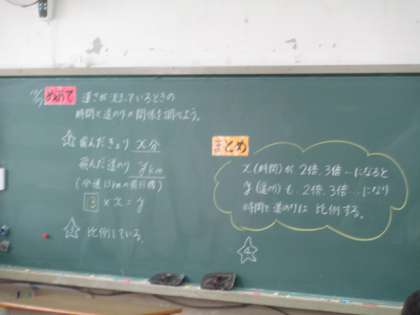 めあて 速さが決まっているときの
時間と道のりの関係を調べよう。
飛んだ x分
飛んだ道のり y km
× x = y
比例している。
まとめ
x(時間)が 2倍、3倍…になると
y(道のり)も、2倍、3倍…になり
時間と道のりは 比例する。